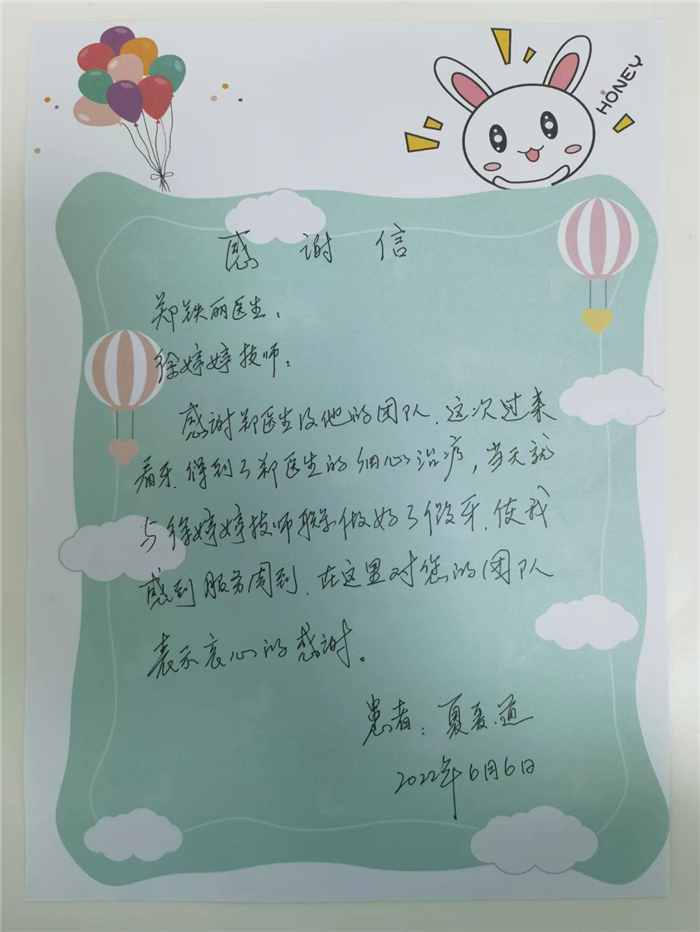 HONEY
感谢信
郑铁丽医生：
徐婷婷技师：
感谢郑医生及他的团队.这次过来
看牙.得到了郑医生的细心治疗，当天就
与徐婷婷技师联系做好了假牙.使我
感到服务周到.在这里对您的团队
表示衷心的感谢。
患者：夏
2022年6月6日